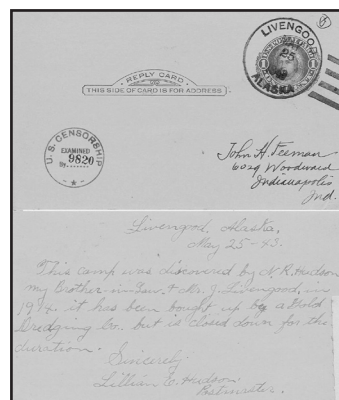 LIVENGOOD
25
ALASKA
1 1
REPLY CARD
THIS SIDE OF CARD IS FOR ADDRESS
U.S. CENSORSHIP
EXAMINED
By 9820
John H. Teeman
6029 Woodward
Indianapolis
Ind.
Livengood, Alaska,
May 25-43.
This camp was discovered by N. R. Hudson
my Brother-in-Law & Mr. J. Livengood, in
1914. it has been bought up by a Gold
Dredging Co. but is closed down for the
duration.
Sincerely
Lillian E. Hudson
Postmaster.